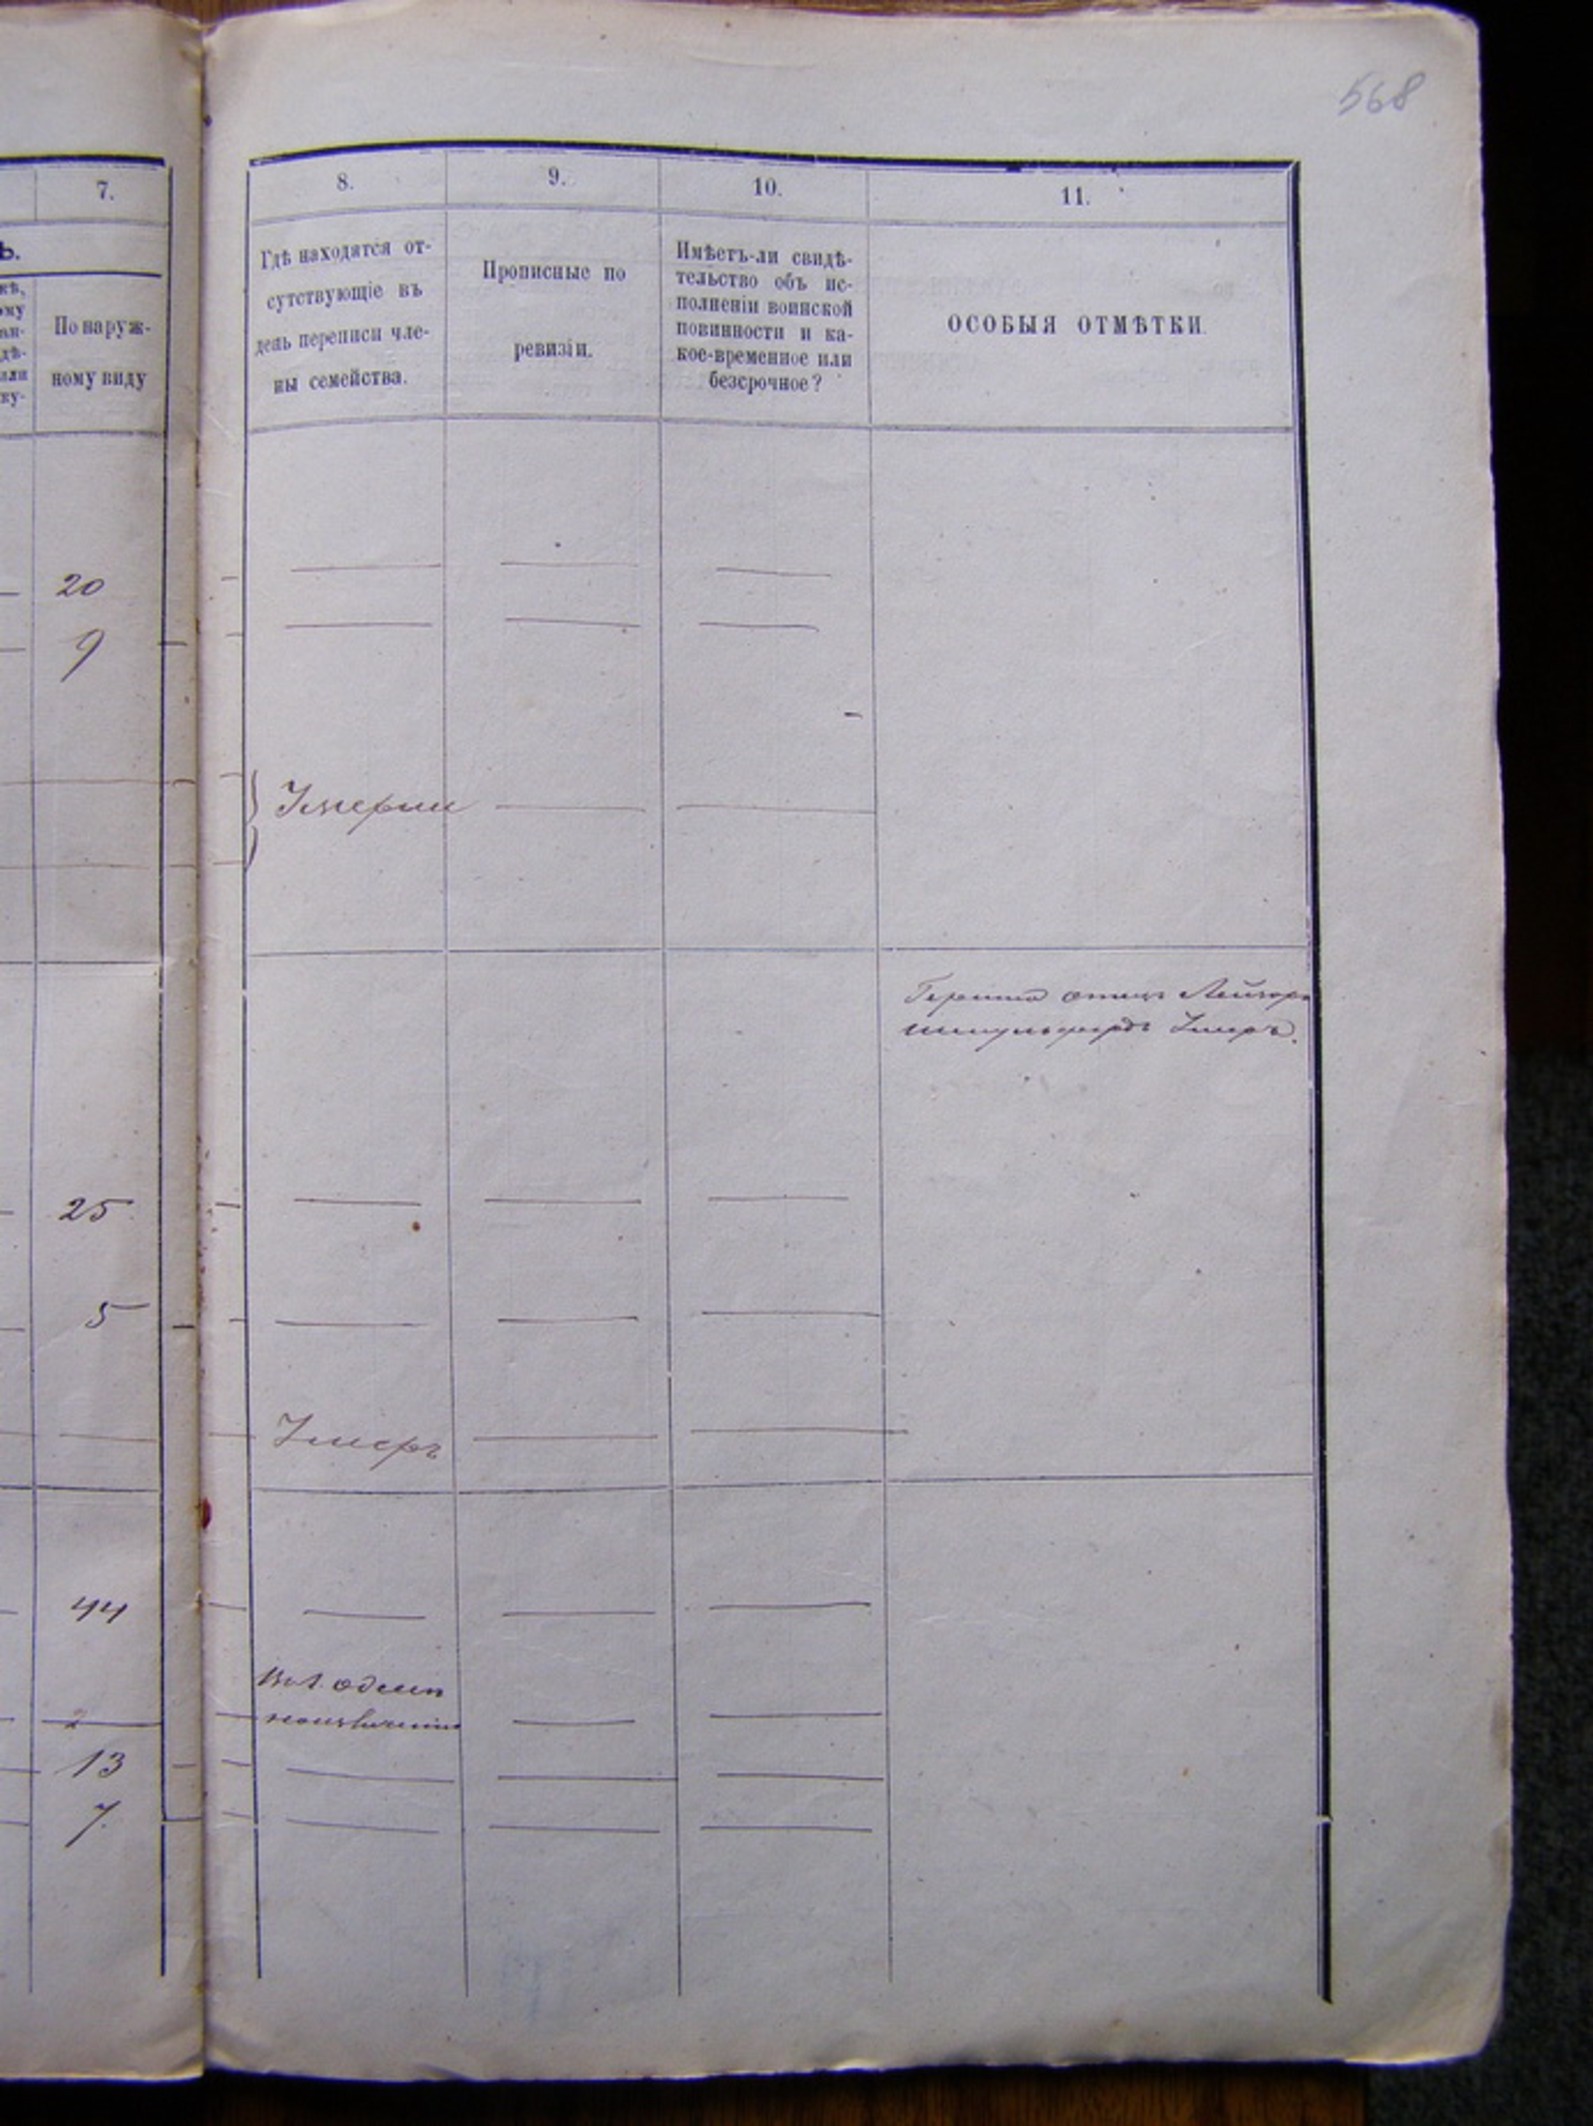 568
7.
8.
9.
10.
11.
ь.
По наруж-
ному виду
Гдѣ находятся от-
сутствующіе въ
день переписи чле-
ны семейства.
Прописные по
ревизіи.
Имѣетъ-ли свидѣ-
тельство объ ис-
полненіи воинской
повинности и ка-
кое-временное или
безсрочное?
ОСОБЫЯ ОТМѢТКИ.
20
9
Умерли
отецъ Лейзоръ
Умеръ.
25
5
Умеръ
44
2
13
7.